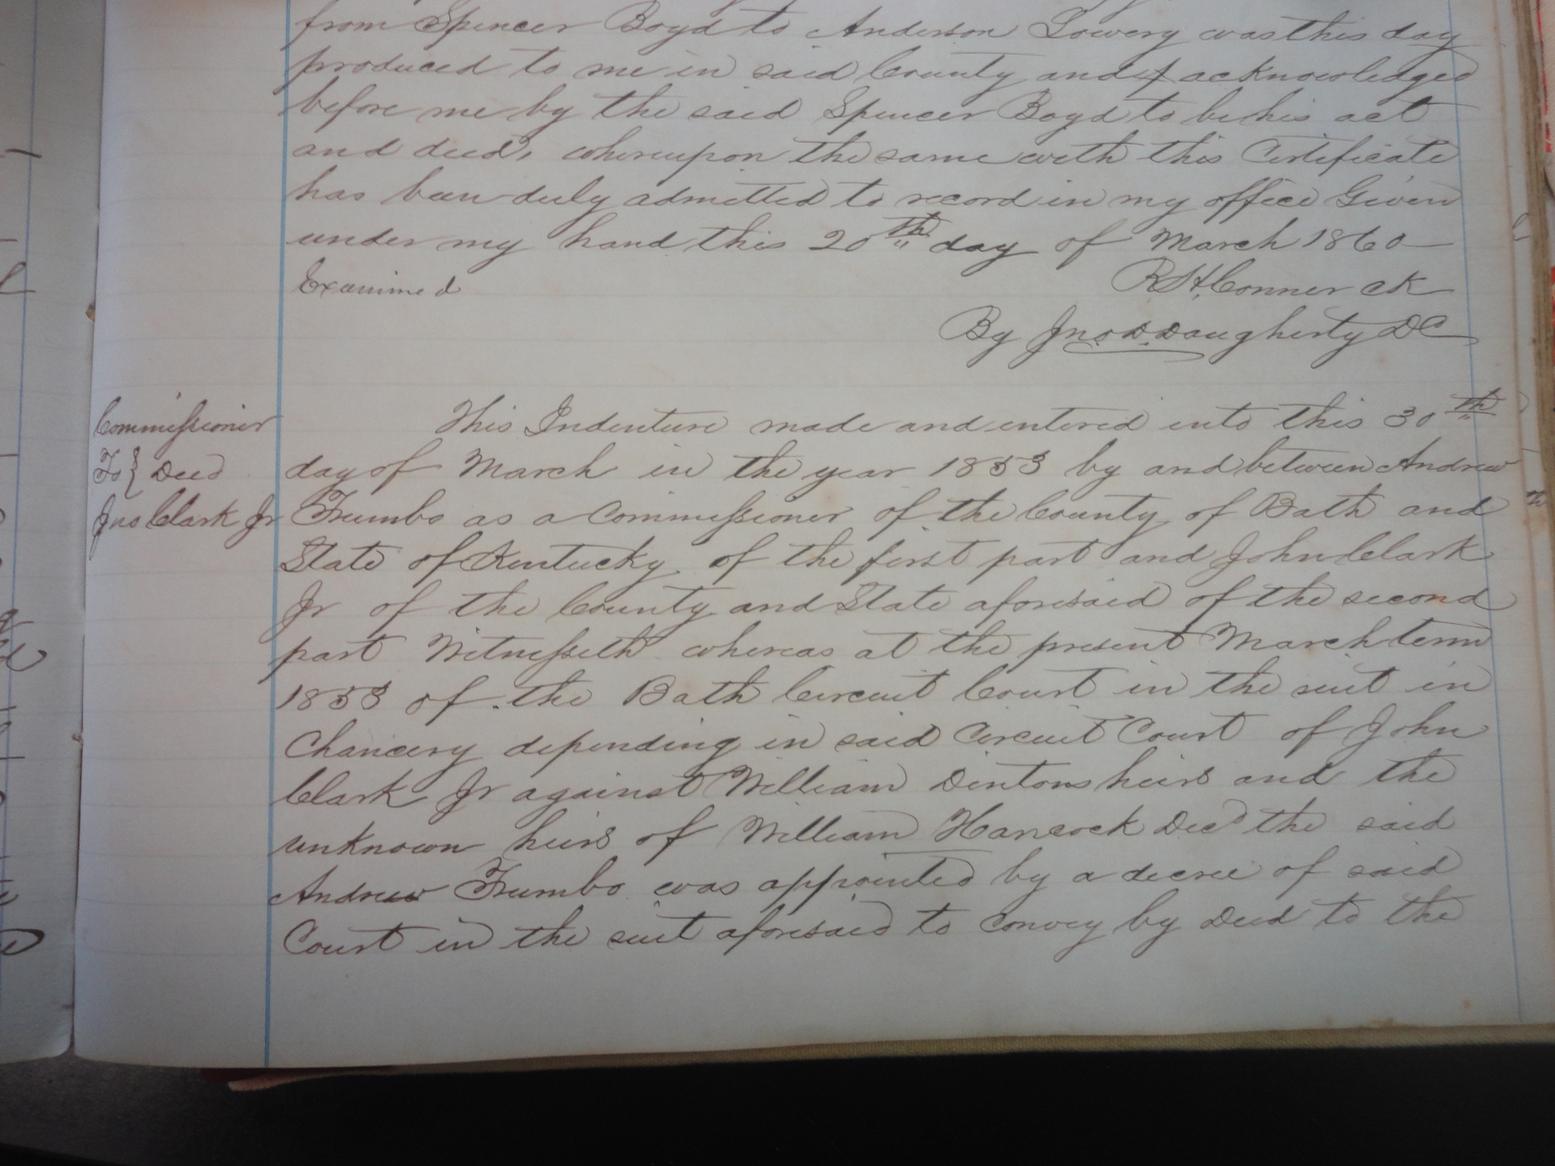 from Spencer Boyd to Anderson Lowery was this day
produced to me in said County and acknowledged
before me by the said Spencer Boyd to be his act
and deed, whereupon the same with this Certificate
has been duly admitted to record in my office Given
under my hand this 20th day of March 1860
Examined
R H Conner ck
By Jno D. Daugherty DC
Commissioner
To } Deed
Jno Clark Jr
This Indenture made and entered into this 30th
day of March in the year 1853 by and between Andrew
Trumbo as a Commissioner of the County of Bath and
State of Kentucky of the first part and John Clark
Jr of the County and State aforesaid of the second
part Witnesseth whereas at the present March term
1853 of the Bath Circuit Court in the suit in
Chancery depending in said Circuit Court of John
Clark Jr against William Dentons heirs and the
unknown heirs of William Hancock Decd the said
Andrew Trumbo was appointed by a decree of said
Court in the suit aforesaid to convey by Deed to the